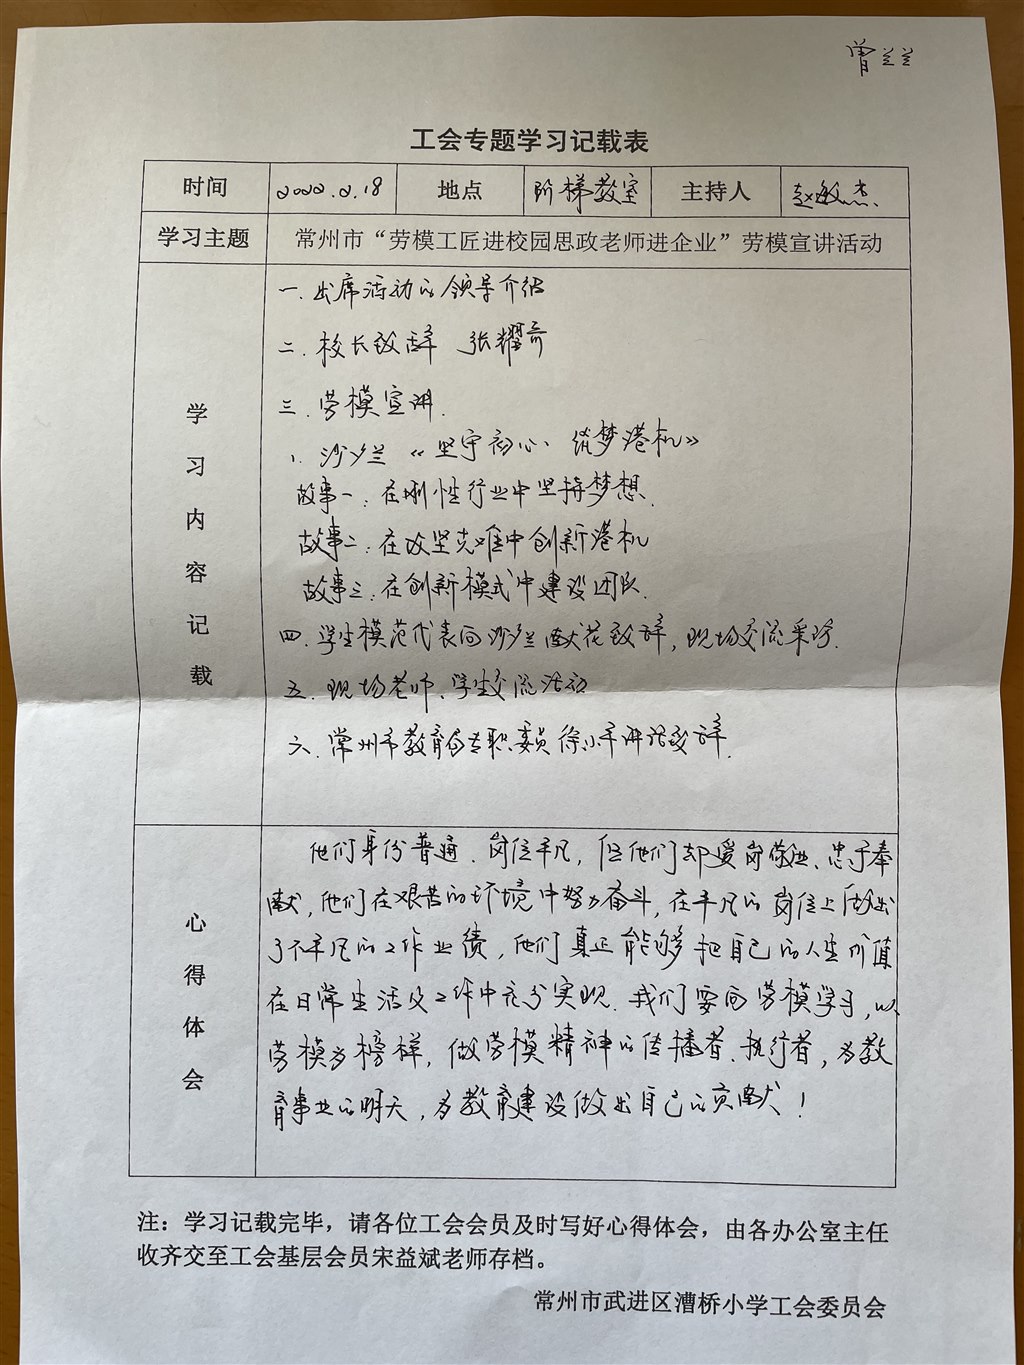 曾兰兰
工会专题学习记载表
时间 2022.2.18 地点 阶梯教室 主持人 赵敏杰
学习主题 常州市“劳模工匠进校园思政老师进企业”劳模宣讲活动
学习内容记载
一.出席活动的领导介绍
二.校长致辞 张耀奇
三.劳模宣讲.
1.沙夕兰《坚守初心、筑梦港机》
故事一:在刚性行业中坚持梦想.
故事二:在攻坚克难中创新港机
故事三:在创新模式中建设团队.
四.学生模范代表向沙夕兰献花致辞,现场交流采访.
五.现场老师、学生交流活动
六.常州市教育局专职委员徐小平讲话致辞.
心得体会
他们身份普通、岗位平凡,但他们却爱岗敬业、忠于奉
献,他们在艰苦的环境中努力奋斗,在平凡的岗位上做出
了不平凡的工作业绩,他们真正能够把自己的人生价值
在日常生活及工作中充分实现.我们要向劳模学习,以
劳模为榜样,做劳模精神的传播者、执行者,为教
育事业的明天,为教育建设做出自己的贡献!
注：学习记载完毕，请各位工会会员及时写好心得体会，由各办公室主任
收齐交至工会基层会员宋益斌老师存档。
常州市武进区漕桥小学工会委员会